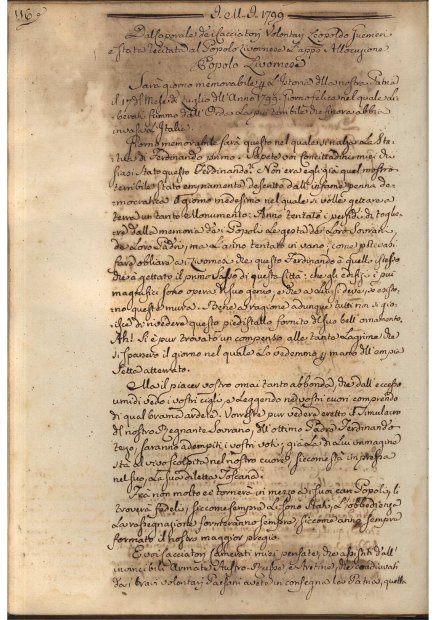 116
J. M. J. 1799
Dal Caporale de Cacciatori Volontarj Leopoldo
è stata recitata al Popolo Livornese l'appie Allocuzione
Popolo Livornese
Sarà giorno memorabile all'Istoria della nostra Patria
il 17 del Mese di Luglio dell'Anno 1799. Giorno felice nel quale li-
berati fummo dall'Orda la più terribile che finora abbia
invasa l'Italia.
Giorno memorabile sarà questo nel quale s'inalza la Sta-
tua di Ferdinando primo. Sapete voi Concittadini miei chi
sia stato questo Ferdinando? Non era egli già quel mostro
terribile stato empiamente descritto dall'infame penna de-
mocratica il giorno medesimo nel quale si volle gettare a
terra un tanto Monumento. Anno tentato i perfidi di toglie-
re dalla memoria dei Popoli le gesta dei Loro Sovrani
da Loro Padri, ma l'anno tentato in vano; come potevasi
far obliare a Livorno che questo Ferdinando è quello stesso
che à gettato il primo Sasso di questa Città: che gli edifizi i più
magnifici sono opera del suo genio, e che a Lui si deva
no queste mura. Bene a ragione adunque tutti noi si gio-
isce di rivedere questo piedistallo fornito del suo bell'ornamento.
Ah! Si è pur trovato un compenso alle tante Lagrime che
si sparsero il giorno nel quale lo vedemmo
atterrato.
Ma il piacer vostro omai tanto abbonda, che dall'eccesso
umidi vedo i vostri cigli, e leggendo ne vostri cuori comprendo
di qual brama ardete. Vorreste pur vedere eretto il Simulacro
del nostro Regnante Sovrano, dell'ottimo Padre Ferdinando
terzo, saranno adempiti i vostri voti; già la di Lui immagine
stà al vivo scolpita nel nostro cuore siccome stà impressa
nel suo, la sua diletta Toscana.
Frà non molto ei tornerà in mezzo a suoi cari Popoli, li
troverà fedeli, siccome sempre li sono stati, l'obbedienza
la rassegnazione formeranno sempre, siccome anno sempre
formato il nostro maggior pregio.
E voi Cacciatori Camerati miei pensate, che assistiti dall'
invincibili Armate Austro-Russe e Aretine, che coadiuvati
da i bravi volontarj Paesani avete in consegna la Patria, quella